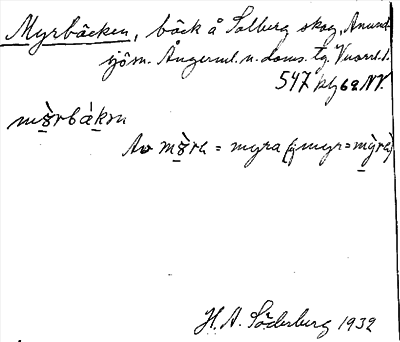 Myrbäcken, bäck å Solberg skog, Anund-
sjö sn. Ångerml. n. doms. tg. Vuornl. 1.
547 kbg 62 NV.
mʚ̀rbákǝn
Av mʚ̀ra = myra (ej myr = mỳra)
H. A. Söderberg 1932